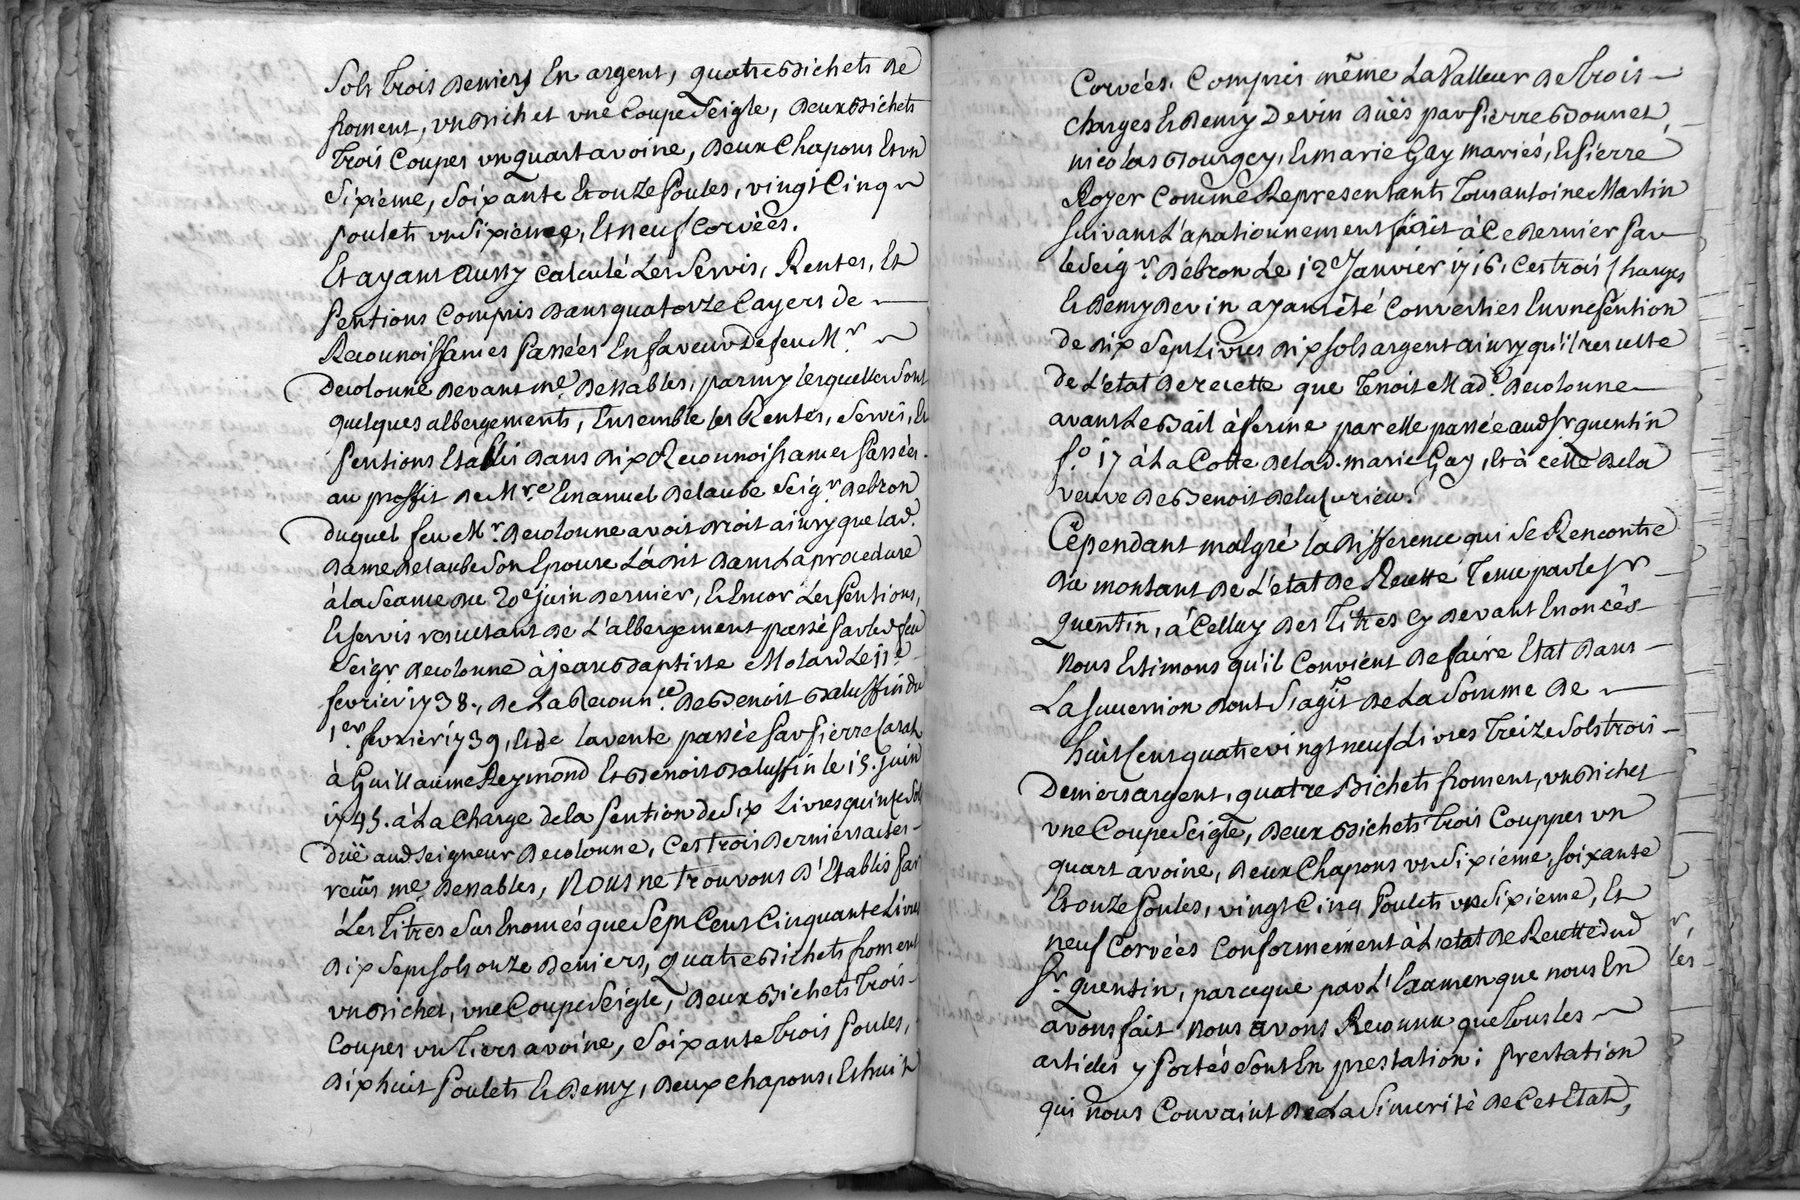 sols trois deniers En argent, quatre Bichets de
froment, vn Bichet vne Coupe Seigle, deux Bichets
trois Coupes vn quart avoine, deux Chapons Et vn
Sixiéme, Soixante Et onze Poules, vingt Cinq
poulets vn Sixiéme, Et neuf Corvées.
Et ayant aussy calculé Les Servis, Rentes, Et
Pentions Compris dans quatorze Cayers de
Reconnoissances Passées En faveur de feu Mr.
Decolonne devant me. Dessables, parmy lesquelles sont
quelques albergements, Ensemble les Rentes, Servis, Et
Pentions Etablis dans dix Reconnoissances Passées
au proffit de Mre. Emanuel Delaube Seigr. Debron
duquel feu Mr. Decolonne avoit droit ainsy que lad.
dame Delaube Son Epouse L'a dit dans La procedure
à la Seance du 20e Juin dernier, Et Encor Les Pentions,
Et servis resultant de L'albergement passé Par led feu
Seigr Decolonne à jean Baptiste Molard Le 11e
fevrier 1738., de La Reconnce. de Benoit Baluffin du
1er. fevrier 1739, Et de la vente passée Par Pierre
à Guillaume Reymond Et Benoit Baluffin le 15. Juin
1745. à La Charge de la Pention de Six Livres quinze Sols
düe aud Seigneur Decolonne, Ces trois derniers actes
recus me. Dessables, Nous ne trouvons d'Etablis Par
Les Titres Sus Enoncés que Sept Cent Cinquante Livres
dix Sept sols onze deniers, quatre Bichets froment
vn Bichet, vne Coupe Seigle, deux Bichets Trois
Coupes vn Tiers avoine, Soixante Trois Poules,
dix huit Poulets Et demy, deux chapons, Et huit
Corvées. Compris même La Valleur de trois
charges Et demy de vin düës par Pierre Bonnet,
nicolas Bourgey, Et marie Gay mariés, Et Pierre
Royer Comme Representants Tous antoine Martin
suivant L'apationnement fait à Ce dernier Par
le Seigr. Debron Le 12e Janvier 1716, Ces trois Charges
Et demy de vin ayant été Converties En vne Pention
de dix Sept Livres dix sols argent ainsy qu'il resulte
de L'etat de recette que Tenoit Made. Decolonne
avant Le Bail à ferme par elle passée aud Sr quentin
fo. 17 à La Cotte de lad. marie Gay, Et à celle de la
veuve de Benoit
Cependant malgré la difference qui se Rencontre
du montant de L'etat de Recette Tenu par le Sr
Quentin, à Celluy des Titres Cy devant Enoncés
Nous Estimons qu'il Convient de faire Etat dans
La succession dont S'agit de La Somme de
huit Cent quatre vingt neuf Livres Treize Sols trois
deniers argent, quatre Bichets froment, vn Bichet
vne Coupe Seigle, deux Bichets Trois Couppes vn
quart avoine, deux Chapons vn Sixiéme, soixante
Et onze Poules, vingt Cinq Poulets vn Sixieme, Et
neuf Corvées Conformément à L'etat de Recette dud
Sr. Quentin, parceque par L'Examen que nous En
avons fait nous avons Reconnu que Tous les
articles y Portés sont En prestation; Prestation
qui nous Convaint de La Sincerité de Cet Etat,